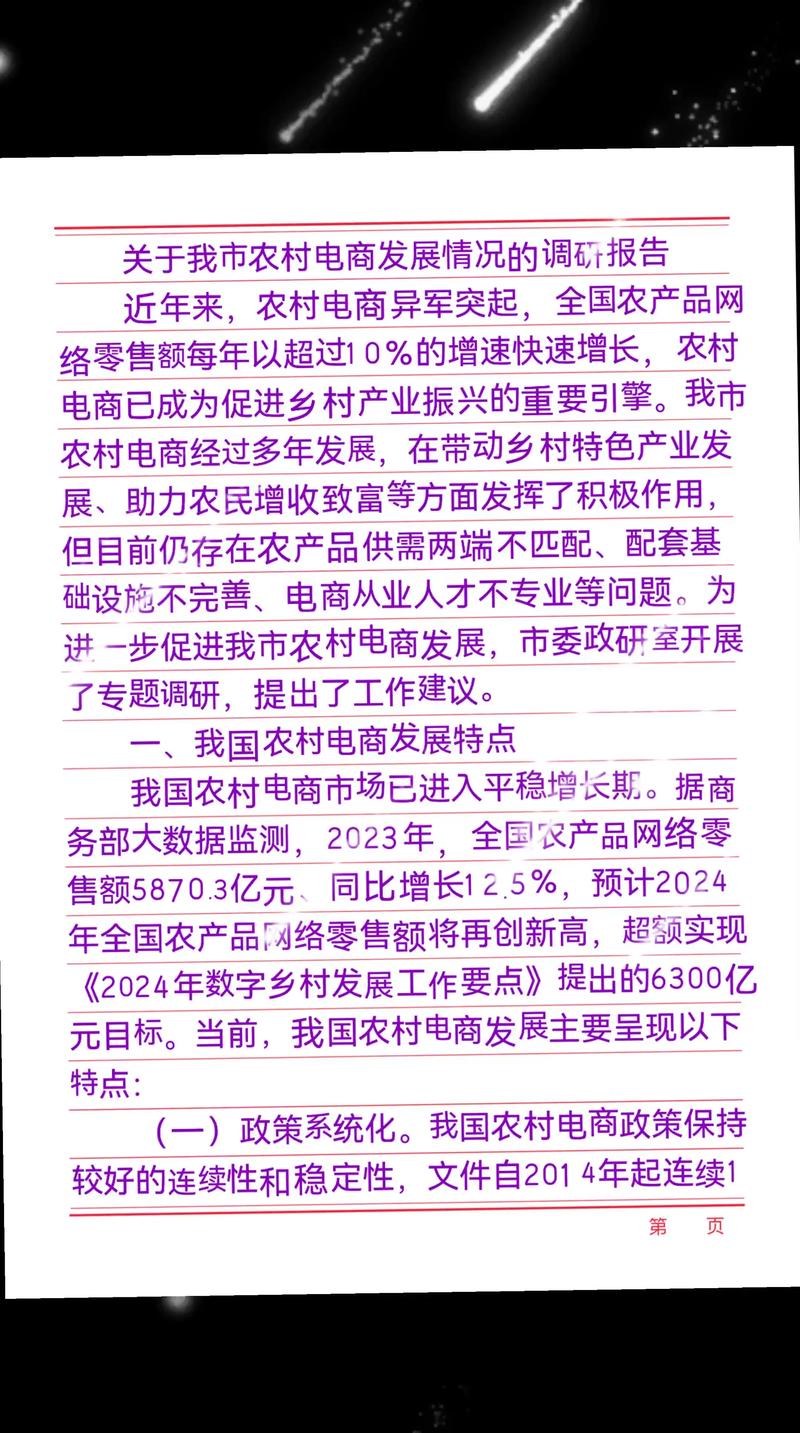 关于我市农村电商发展情况的调研报告
近年来，农村电商异军突起，全国农产品网
络零售额每年以超过10%的增速快速增长，农村
电商已成为促进乡村产业振兴的重要引擎。我市
农村电商经过多年发展，在带动乡村特色产业发
展、助力农民增收致富等方面发挥了积极作用，
但目前仍存在农产品供需两端不匹配、配套基
础设施不完善、电商从业人才不专业等问题。为
进一步促进我市农村电商发展，市委政研室开展
了专题调研，提出了工作建议。
一、我国农村电商发展特点
我国农村电商市场已进入平稳增长期。据商
务部大数据监测，2023年，全国农产品网络零
售额5870.3亿元、同比增长12.5%，预计2024
年全国农产品网络零售额将再创新高，超额实现
《2024年数字乡村发展工作要点》提出的6300亿
元目标。当前，我国农村电商发展主要呈现以下
特点：
（一）政策系统化。我国农村电商政策保持
较好的连续性和稳定性，文件自2014年起连续1
第 页